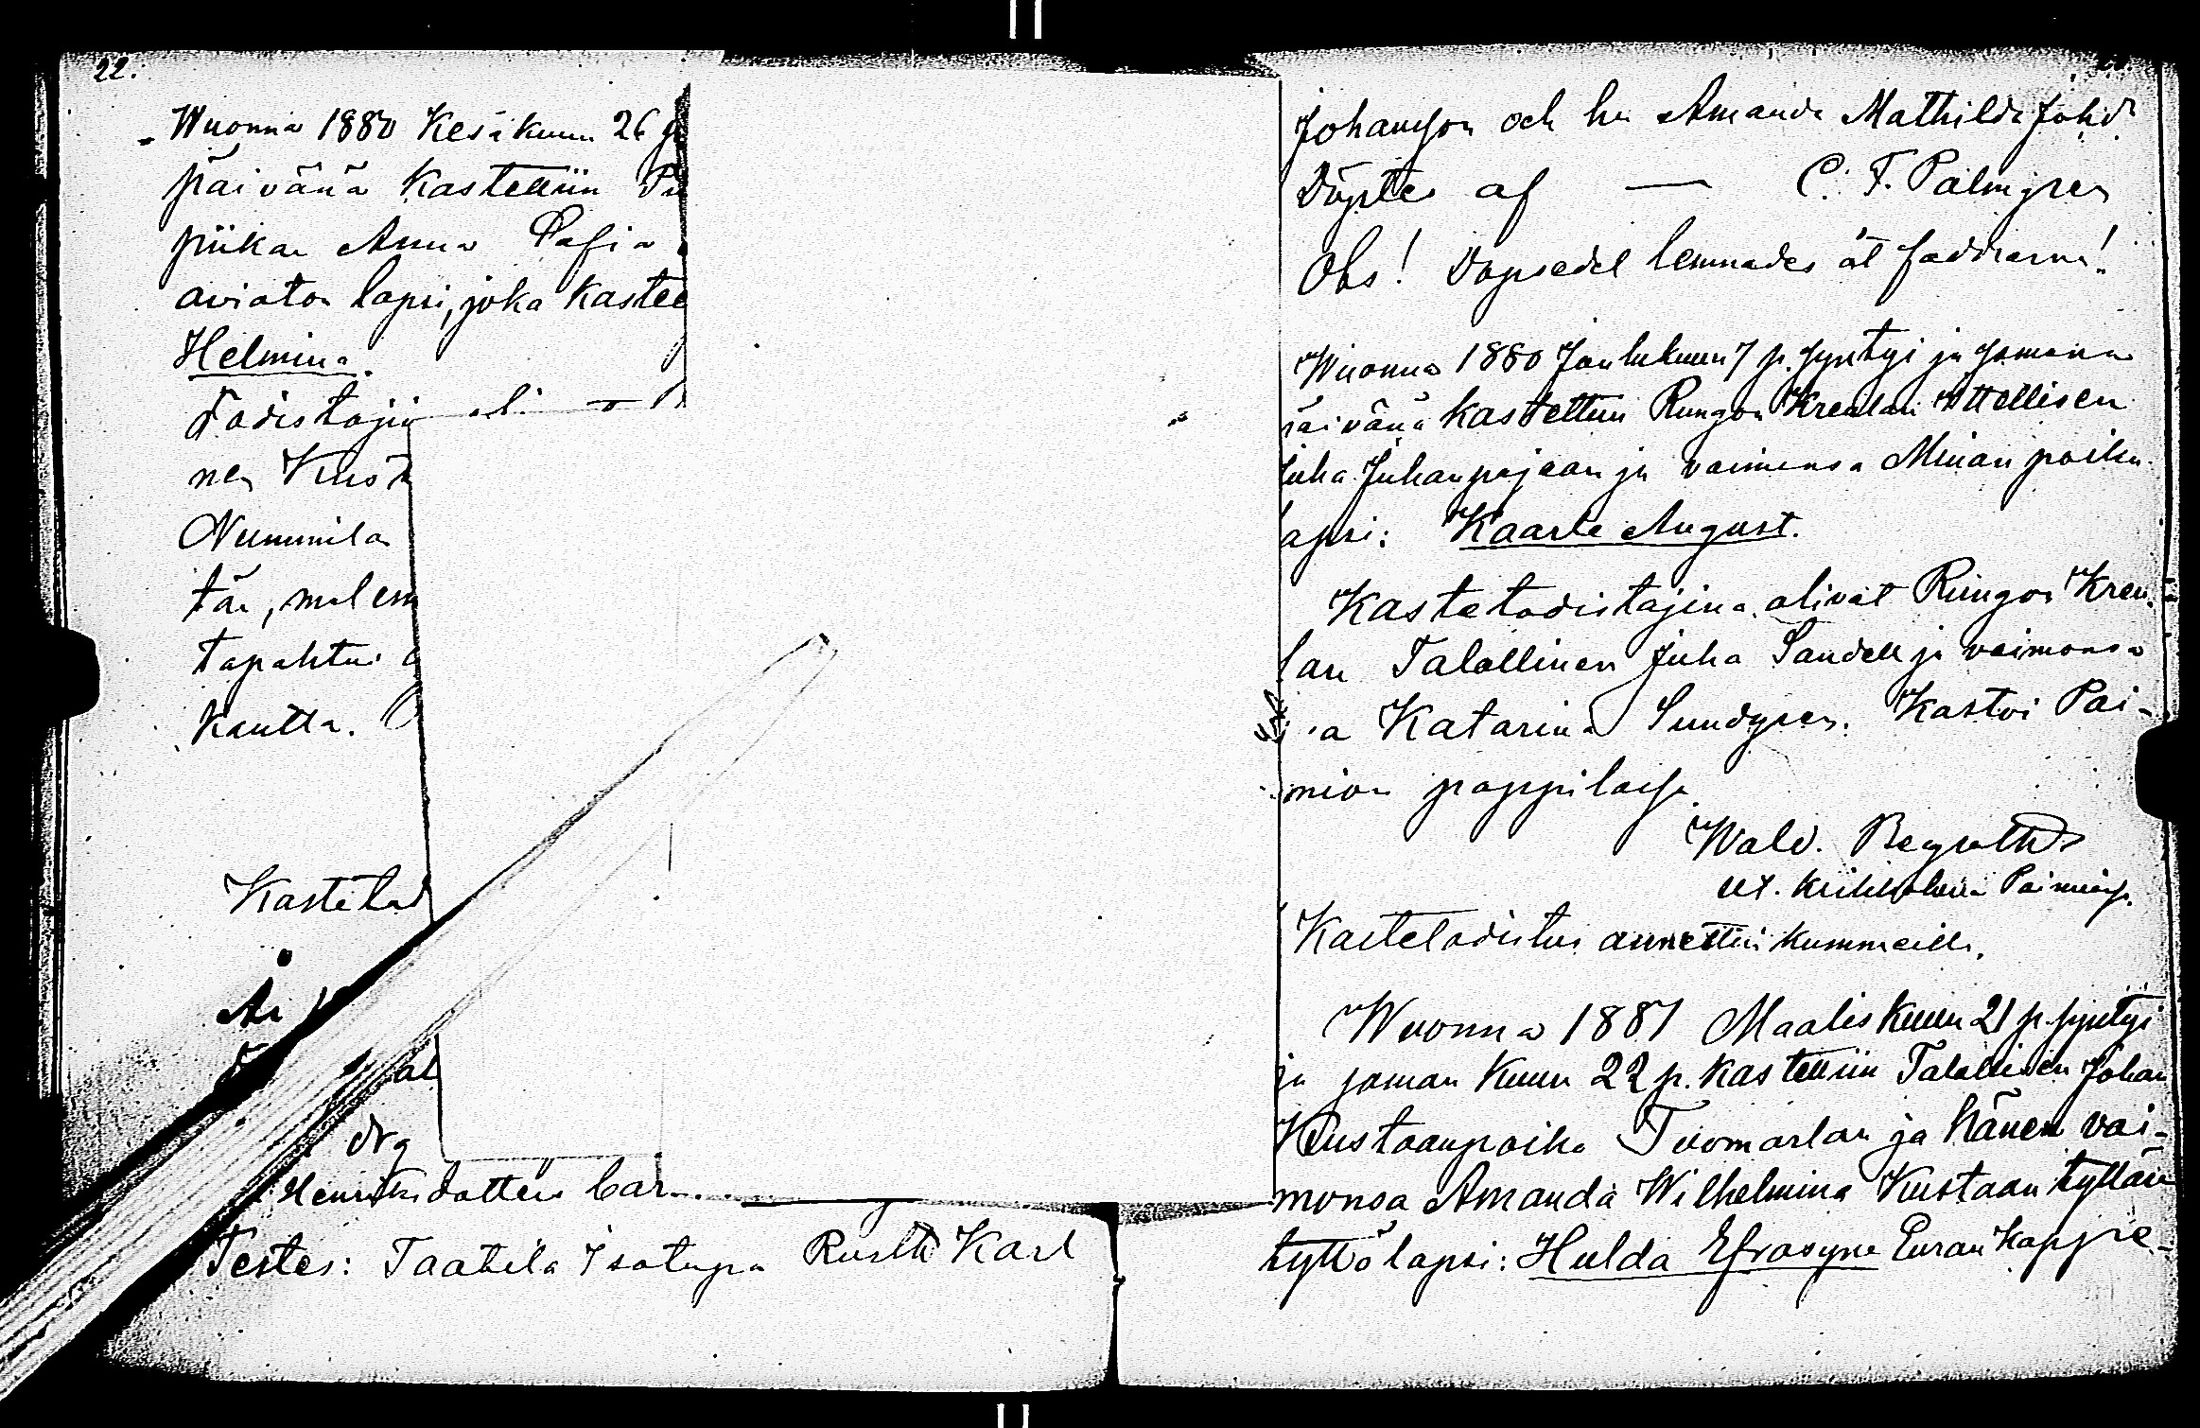 22.
Wuonna 1880 Kesäkuun 26
päivänä Kastettiin
piikan Anna Sofia
aviaton lapsi, joka Kastee
Helmina.
Todistajin
nen Kust
Nummila
tär, mol em
tapahtui
Kautta.
Kastetod
Henriksdotters barn
Testes: Taatila Isotupa Rusth Karl
Johansson och h:u Amanda Mathilda Joh:dr
Döptes af — C. F. Palmgren
Obs! Dopsedel lemnades åt faddrarne!
Wuonna 1880 Joulukuun 7 p. syntyi ja samana
päivänä kastettiin Rungon Krenlan Ittellisen
Juha Juhanpojan ja vaimonsa Minan poika
lapsi: Kaarle August.
Kastetodistajina olivat Rungon Kren-
lan Talollinen Juha Sandell ja vaimonsa
Katarina Kastoi Pai-
mion pappilassa
Wald.
Kastetodistus annettiin kummeille.
Wuonna 1881 Maaliskuun 21 p. syntyi
ja saman Kuun 22 p. kastettiin Talollisen Johan
Kustaanpoika Tuomarlan ja hänen vai-
monsa Amanda Wilhelmina Kustaan tyttären
tyttölapsi: Hulda Efrosyne Euran Kappe-